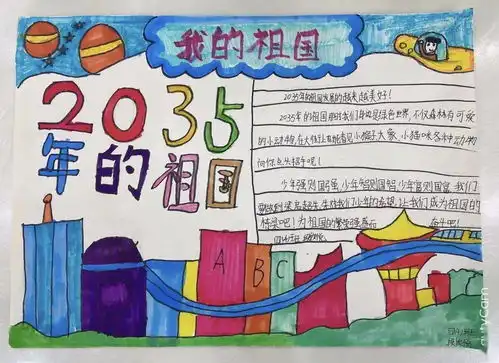 我的祖国
2035
年的祖国
2035年的祖国发展的越来越美好！
2035年的祖国那时我们身边是绿色世界,不仅森林有可爱
的小动物,在大街上也能看见小猴子大象、小猫咪各种动物
向你点头招手呢！
少年强则国强,少年智则国智,少年富则国富,我们
让我们成为祖国的
栋梁吧！为祖国的繁荣强盛而奋斗吧！
A
B
C